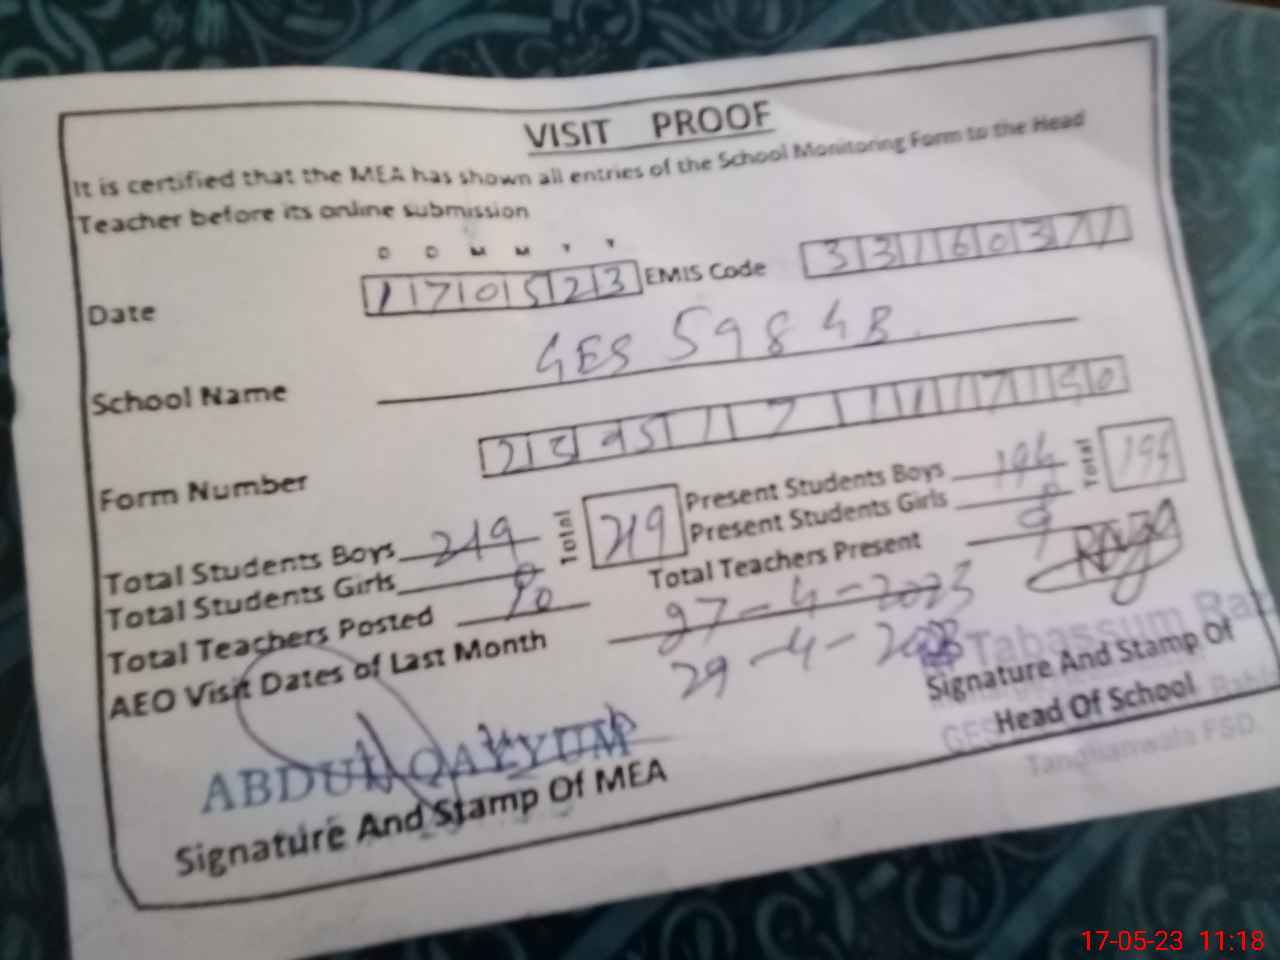 VISIT PROOF
It is certified that the MEA has shown all entries of the School Monitoring Form to the Head
Teacher before its online submission
D D M M Y Y
Date 170523 EMIS Code 33160371
School Name GES 598 GB
Form Number
Total Students Boys 219 Total 219 Present Students Boys 194 Total 194
Total Students Girls 0 Present Students Girls 0
Total Teachers Posted 10 Total Teachers Present 9
AEO Visit Dates of Last Month 27-4-2023
29-4-2023
Tabassum
ABDUL QAYYUM
Signature And Stamp Of MEA
Signature And Stamp Of
Head Of School
GES
Tandlianwala FSD.
17-05-23 11:18